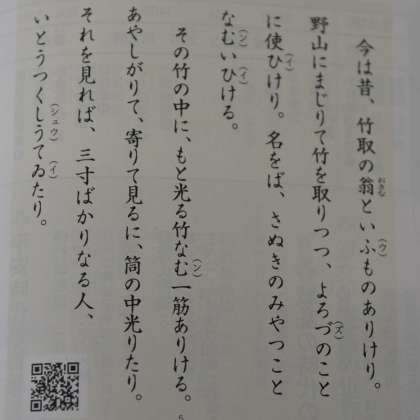 今は昔、竹取の翁(おきな)といふ(ウ)ものありけり。
野山にまじりて竹を取りつつ、よろづ(ズ)のこと
に使ひ(イ)けり。名をば、さぬきのみやつこと
なむ(ン)いひ(イ)ける。
その竹の中に、もと光る竹なむ(ン)一筋ありける。
あやしがりて、寄りて見るに、筒の中光りたり。
それを見れば、三寸ばかりなる人、
いとうつくしう(シュウ)てゐ(イ)たり。